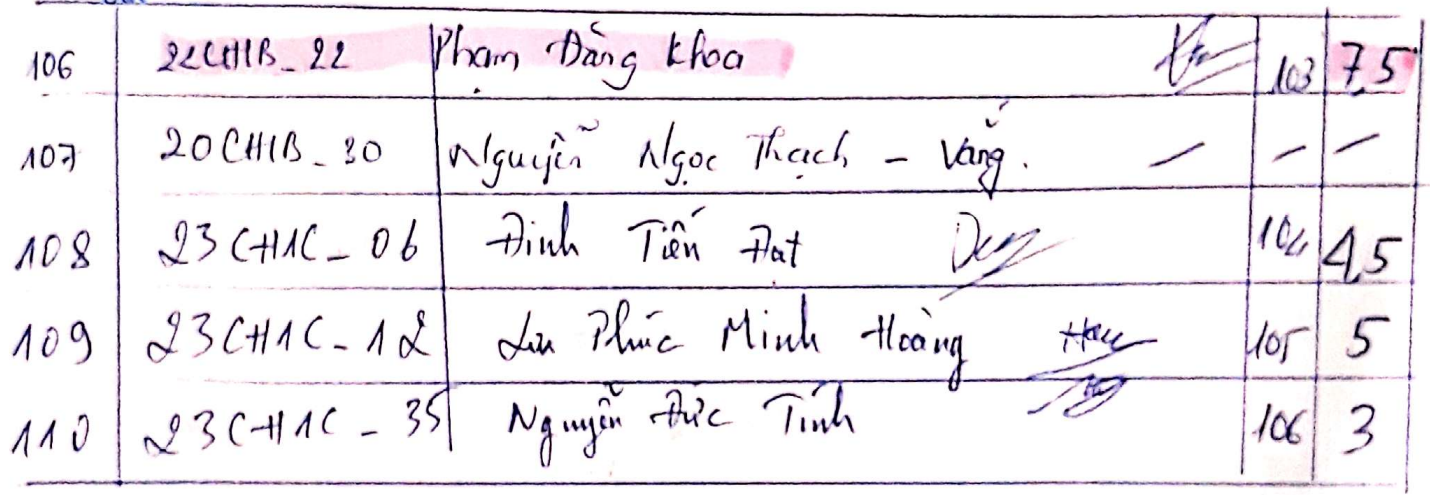 106 22CH1B_22 Phạm Đăng Khoa 103 7,5
107 20CH1B_30 Nguyễn Ngọc Thạch - Vắng. - - -
108 23CH1C_06 Đinh Tiến Đạt 104 4,5
109 23CH1C-12 Lưu Phúc Minh Hoàng 105 5
110 23CH1C-35 Nguyễn Đức Tính 106 3